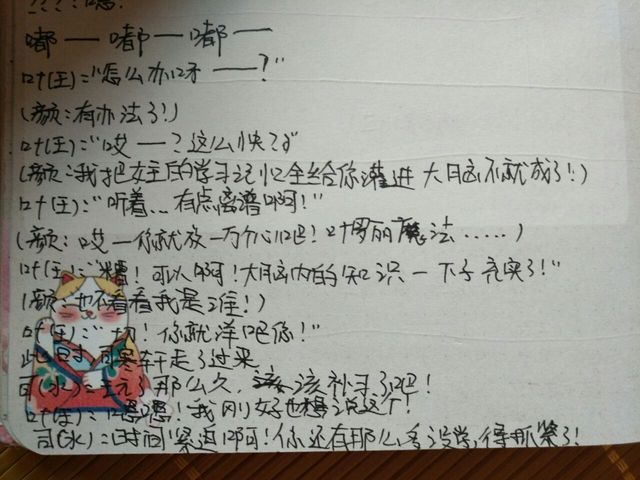 ????嗯!
嘟——嘟——嘟——
叶(王):"怎么办呀——?"
(颜:有办法了!)
叶(王):"哎—?这么快?"
(颜:我把女主的学习记忆全给你灌进大脑不就成了!)
叶(王):"听着...有点离谱啊!"
(颜:哎—你就放一万个心吧!叶罗丽魔法……)
叶(王):"嘿!可以啊!大脑内的知识一下子充实了!"
(颜:也不看看我是谁!)
叶(王):"切!你就洋吧你!"
此时,司寒轩走了过来
司(水):玩了那么久,该补习了吧!
叶(王):"嗯嗯!我刚好也想说这个!
司(水):"时间紧迫啊!你还有那么多没学,得抓紧了!